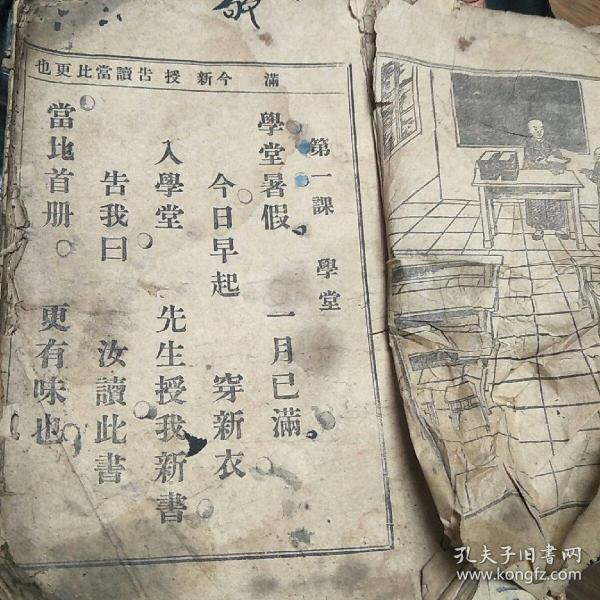 滿 今 新 授 告 讀 當 比 更 也
第一課 學堂
學堂暑假。一月已滿。
今日早起。穿新衣
入學堂。先生授我新書。
告我曰。汝讀此書。
當比首册。更有味也。
孔夫子旧书网
www.kongfz.com